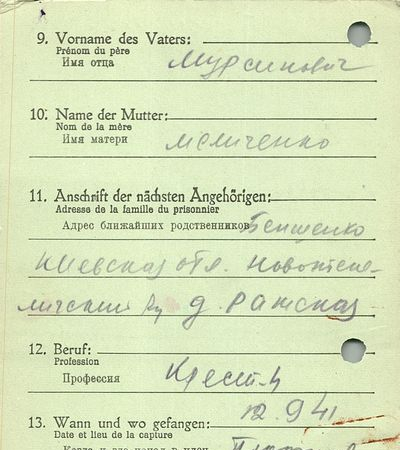 9. Vorname des Vaters:
Prénom du père
Имя отца
Мурсинович
10. Name der Mutter:
Nom de la mère
Имя матери
Меличенко
11. Anschrift der nächsten Angehörigen:
Adresse de la famille du prisonnier
Адрес ближайших родственников
Киевская обл.
д. Ражская
12. Beruf:
Profession
Профессия Крест-н
13. Wann und wo gefangen: 12.9 41
Date et lieu de la capture